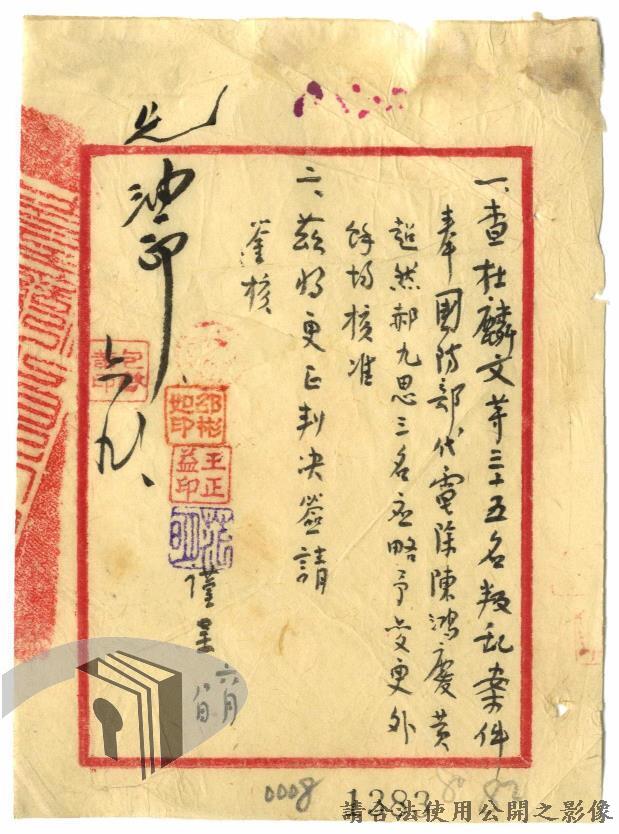 一、查杜麟文等三十五名叛乱案件
奉國防部代電除陳鴻慶黃
超然郝九思三名应略予变更外
餘均核准
二、茲將更正判决簽請
鉴核
邵彬如印
王正益印
謹呈
六月
八日
油印
六九、
0008
1383
請合法使用公開之影像